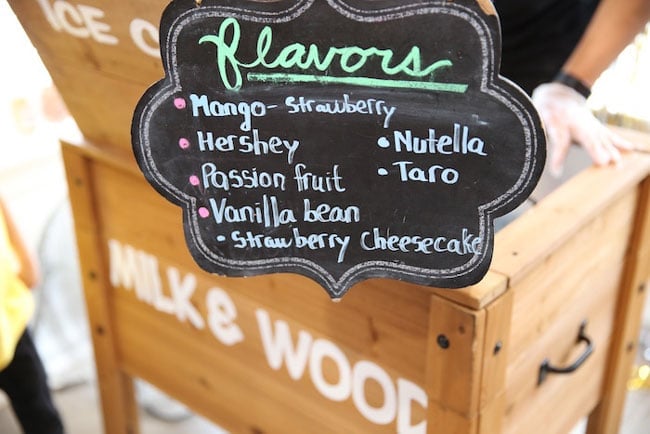 ICE C
flavors
Mango-Strawberry
Hershey
Passion fruit
Vanilla bean
Strawberry Cheesecake
Nutella
Taro
MILK & WOOD